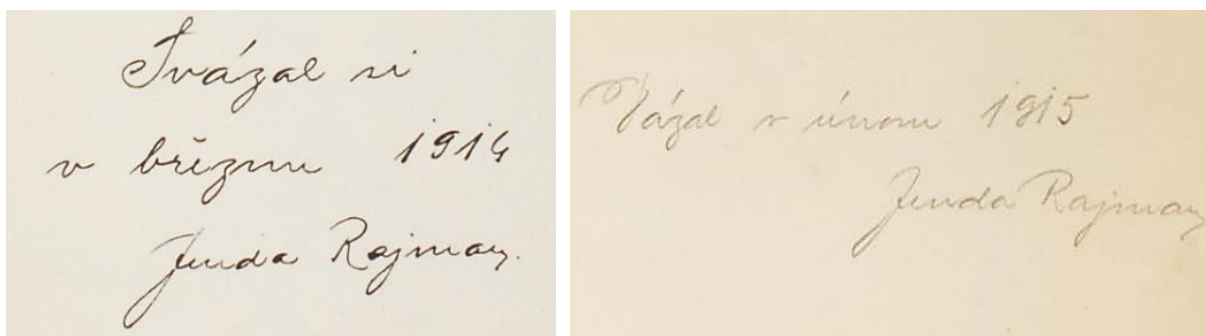 Svázal si
v březnu 1914
Jenda Rajman.
Vázal v únoru 1915
Jenda Rajman